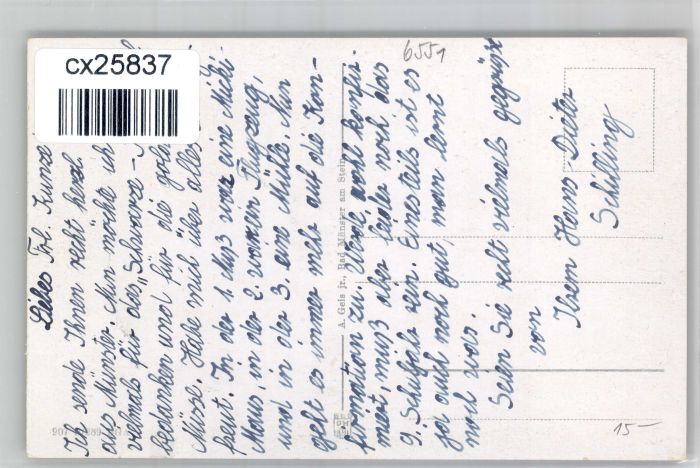 cx25837
6551
Liebes Frl. Kunze
Ich sende Ihnen recht herzl.
aus Münster. Nun möchte ich
vielmals für das „Schwarze-
bedanken und für die
Nüsse. Habe mich über alles
freut. In der 1. Nuß war eine Micki-
Maus, in der 2. war ein Flugzeug,
und in der 3. eine Mühle. Nun
geht es immer mehr auf die Kon-
firmation zu. Werde wohl konfir-
miert, muß aber leider noch das
9. Schuljahr sein. Einesteils ist es
ja auch noch gut, man lernt
noch was.
Seien Sie selt vielmals gegrüßt
von
Ihrem Hans Dieter
Schilling
A. Geis jr., Bad Münster am Stein
15-